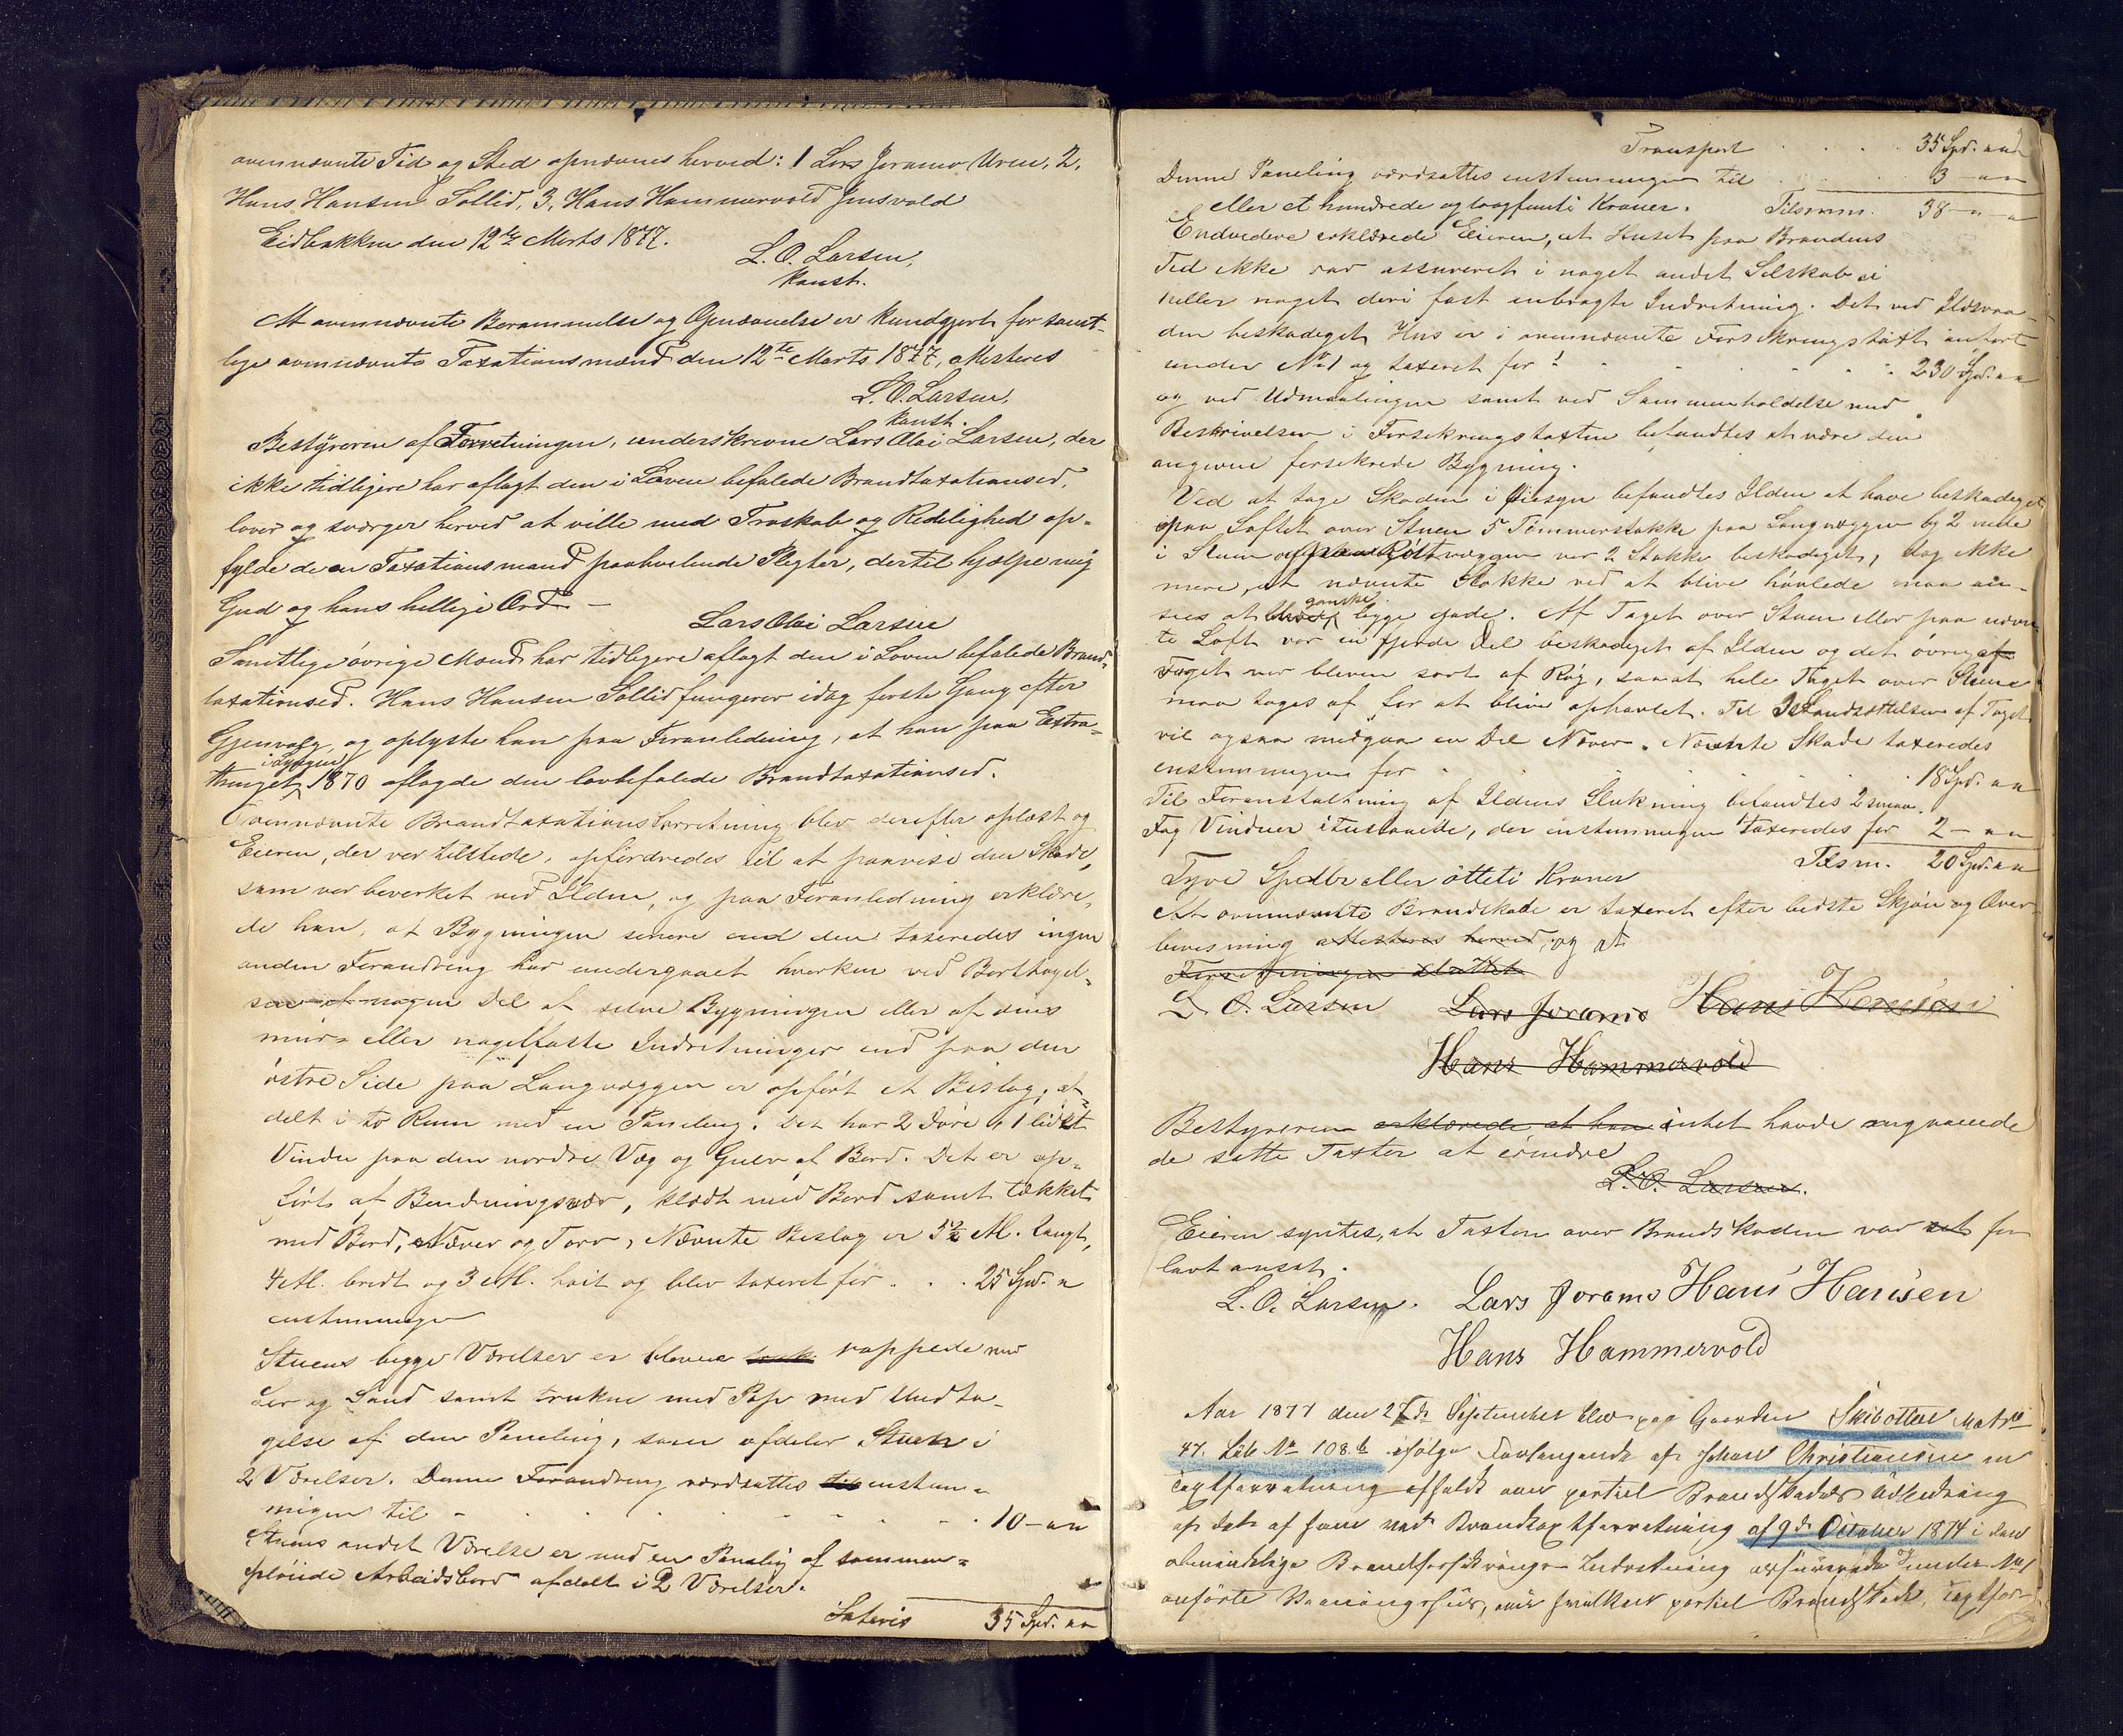 ovennævnte Tid og Sted opnævnes herved: 1 Lars Joramo Uren, 2,
Hans Hansen Sollid, 3, Hans Hammervold Jensvold
Eidbakken den 12te Marts 1877.
L. O. Larsen,
konst.
At ovennævnte Berammelse og Opnævnelse er kundgjort for samt-
lige ovennævnte Taxationsmænd den 12te Marts 1877, attesteres
L. O. Larsen,
konst.
Bestyreren af Forretningen, underskrevne Lars Olai Larsen, der
ikke tidligere har aflagt den i Loven befalede Brandtaxationsed,
lover og sværger herved at ville med Troskab og Redelighed op-
fylde de en Taxationsmand paahvilende Pligter, dertil hjælpe mig
Gud og hans hellige Ord. –
Lars Olai Larsen
Samtlige øvrige Mænd har tidligere aflagt den i Loven befalede Brand-
taxationsed. Hans Hansen Sollid fungerer idag første Gang efter
Gjenvalg, og oplyste han paa Foranledning, at han paa Extra-
i Lyngen
thinget 1870 aflagde den lovbefalede Brandtaxationsed.
Ovennævnte Brandtaxationsforretning blev derefter oplæst og
Eieren, der var tilstede, opfordredes til at paavise den Skade,
som var bevirket ved Ilden, og paa Foranledning erklære-
de han, at Bygningen senere end den taxeredes ingen
anden Forandring har undergaaet hverken ved Borttagel-
sen af nogen Del af selve Bygningen eller af dens
mur- eller nagelfaste Indretninger end paa den
østre Side paa Langvæggen er opført et Bislag, af-
delt i to Rum med en Paneling. Det har 2 Døre og 1 lidet
Vindu paa den nordre Væg og Gulv af Bord. Det er op-
ført af Bindningsvær, klædt med Bord samt tækket
med Bord, Næver og Torv, Nævnte Bislag er 5½ Al. langt,
4 Al. bredt og 3 Al. høit og blev taxeret for . . . 25 Spd. "
enstemmigen
Stuens begge Værelser er blevne rappede med
Ler og Sand samt trukne med Pap med Undta-
gelse af den Paneling, som afdeler Stuen i
2 Værelser. Denne Forandring værdsattes enstem-
migen til . . . . . . . 10 – " "
Stuens andet Værelse er med en Paneling af sammen-
pløiede Arbeidsbord afdelt i 2 Værelser.
Lateris 35 Spd. " "
Transport . . . . 35 Spd. " "
Denne Paneling værdsattes enstemmigen til . . . 3 – " "
eller et hundrede og toogfemti Kroner. Tilsmm. 38 – " – "
Endvidere erklærede Eieren, at Huset paa Brandens
Tid ikke var assureret i noget andet Selskab ei
heller noget deri fast inbragte Indretning. Det ved Ildsvaa-
den beskadiget Hus er i ovennævnte Forsikringstaxt anført
under No 1 og taxeret for . . . . . 230 Spd. " "
og ved Udmaalingen samt ved Sammenholdelse med
Beskrivelsen i Forsikringstaxten befandtes at være den
angivne forsikrede Bygning.
Ved at tage Skaden i Øiesyn befandtes Ilden at have beskadiget
paa Loftet over Stuen 5 Tømmerstokke paa Langvæggen og 2 nede
i Stuen Røstvæggen var 2 Stokke beskadiget, dog ikke
mere, at nævnte Stokke ved at blive høvlede maa an-
ganske
sees at begge gode. Af Taget over Stuen eller paa nævn-
te Loft var en fjerde Del beskadiget af Ilden og det øvrige af
Taget var bleven sort af Røg, saa at hele Taget over Stuen
maa tages af for at blive ophøvlet. Til Istandsættelsen af Taget
vil ogsaa medgaa en Del Næver. Nævnte Skade taxeredes
enstemmigen for . . . 18 Spd. " "
Til Foranstaltning af Ildens Slukning befandtes 2 smaa
Fag Vinduer ituslaaede, der enstemmigen taxeredes for 2 – " "
Tilsm. 20 Spd. " "
Tyve Spdlr eller ötteti Kroner
At ovennævnte Brandskade er taxeret efter bedste Skjøn og Over-
bevisning attesteres herved, og at
Forretningen sluttet
L. O. Larsen Lars Joramo Hans Hansen
Hans Hammervold
Bestyreren erklærede at han intet havde angaaende
de satte Taxter at erindre
L. O. Larsen.
Eieren syntes, at Taxten over Brandskaden var sat for
lavt ansat.
L. O. Larsen. Lars Joramo Hans Hansen
Hans Hammervold
Aar 1877 den 27de September blev paa Gaarden Skibotten Matr No
47. Løb No 108.b ifølge Forlangende af Johan Christiansen en
Taxtforretning afholdt over partiel Brandskades Udbedring
af det af ham ved Brandtaxtforretning af 9de October 1874 i den
almindelige Brandforsikrings Indretning assurerede og under No 1
anførte Vaaningshus, over hvilket partiel Brandskade, Taxtfor-